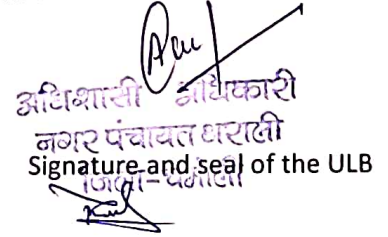 अधिशासी अधिकारी
नगर पंचायत थराली
Signature and seal of the ULB
जिला-चमोली